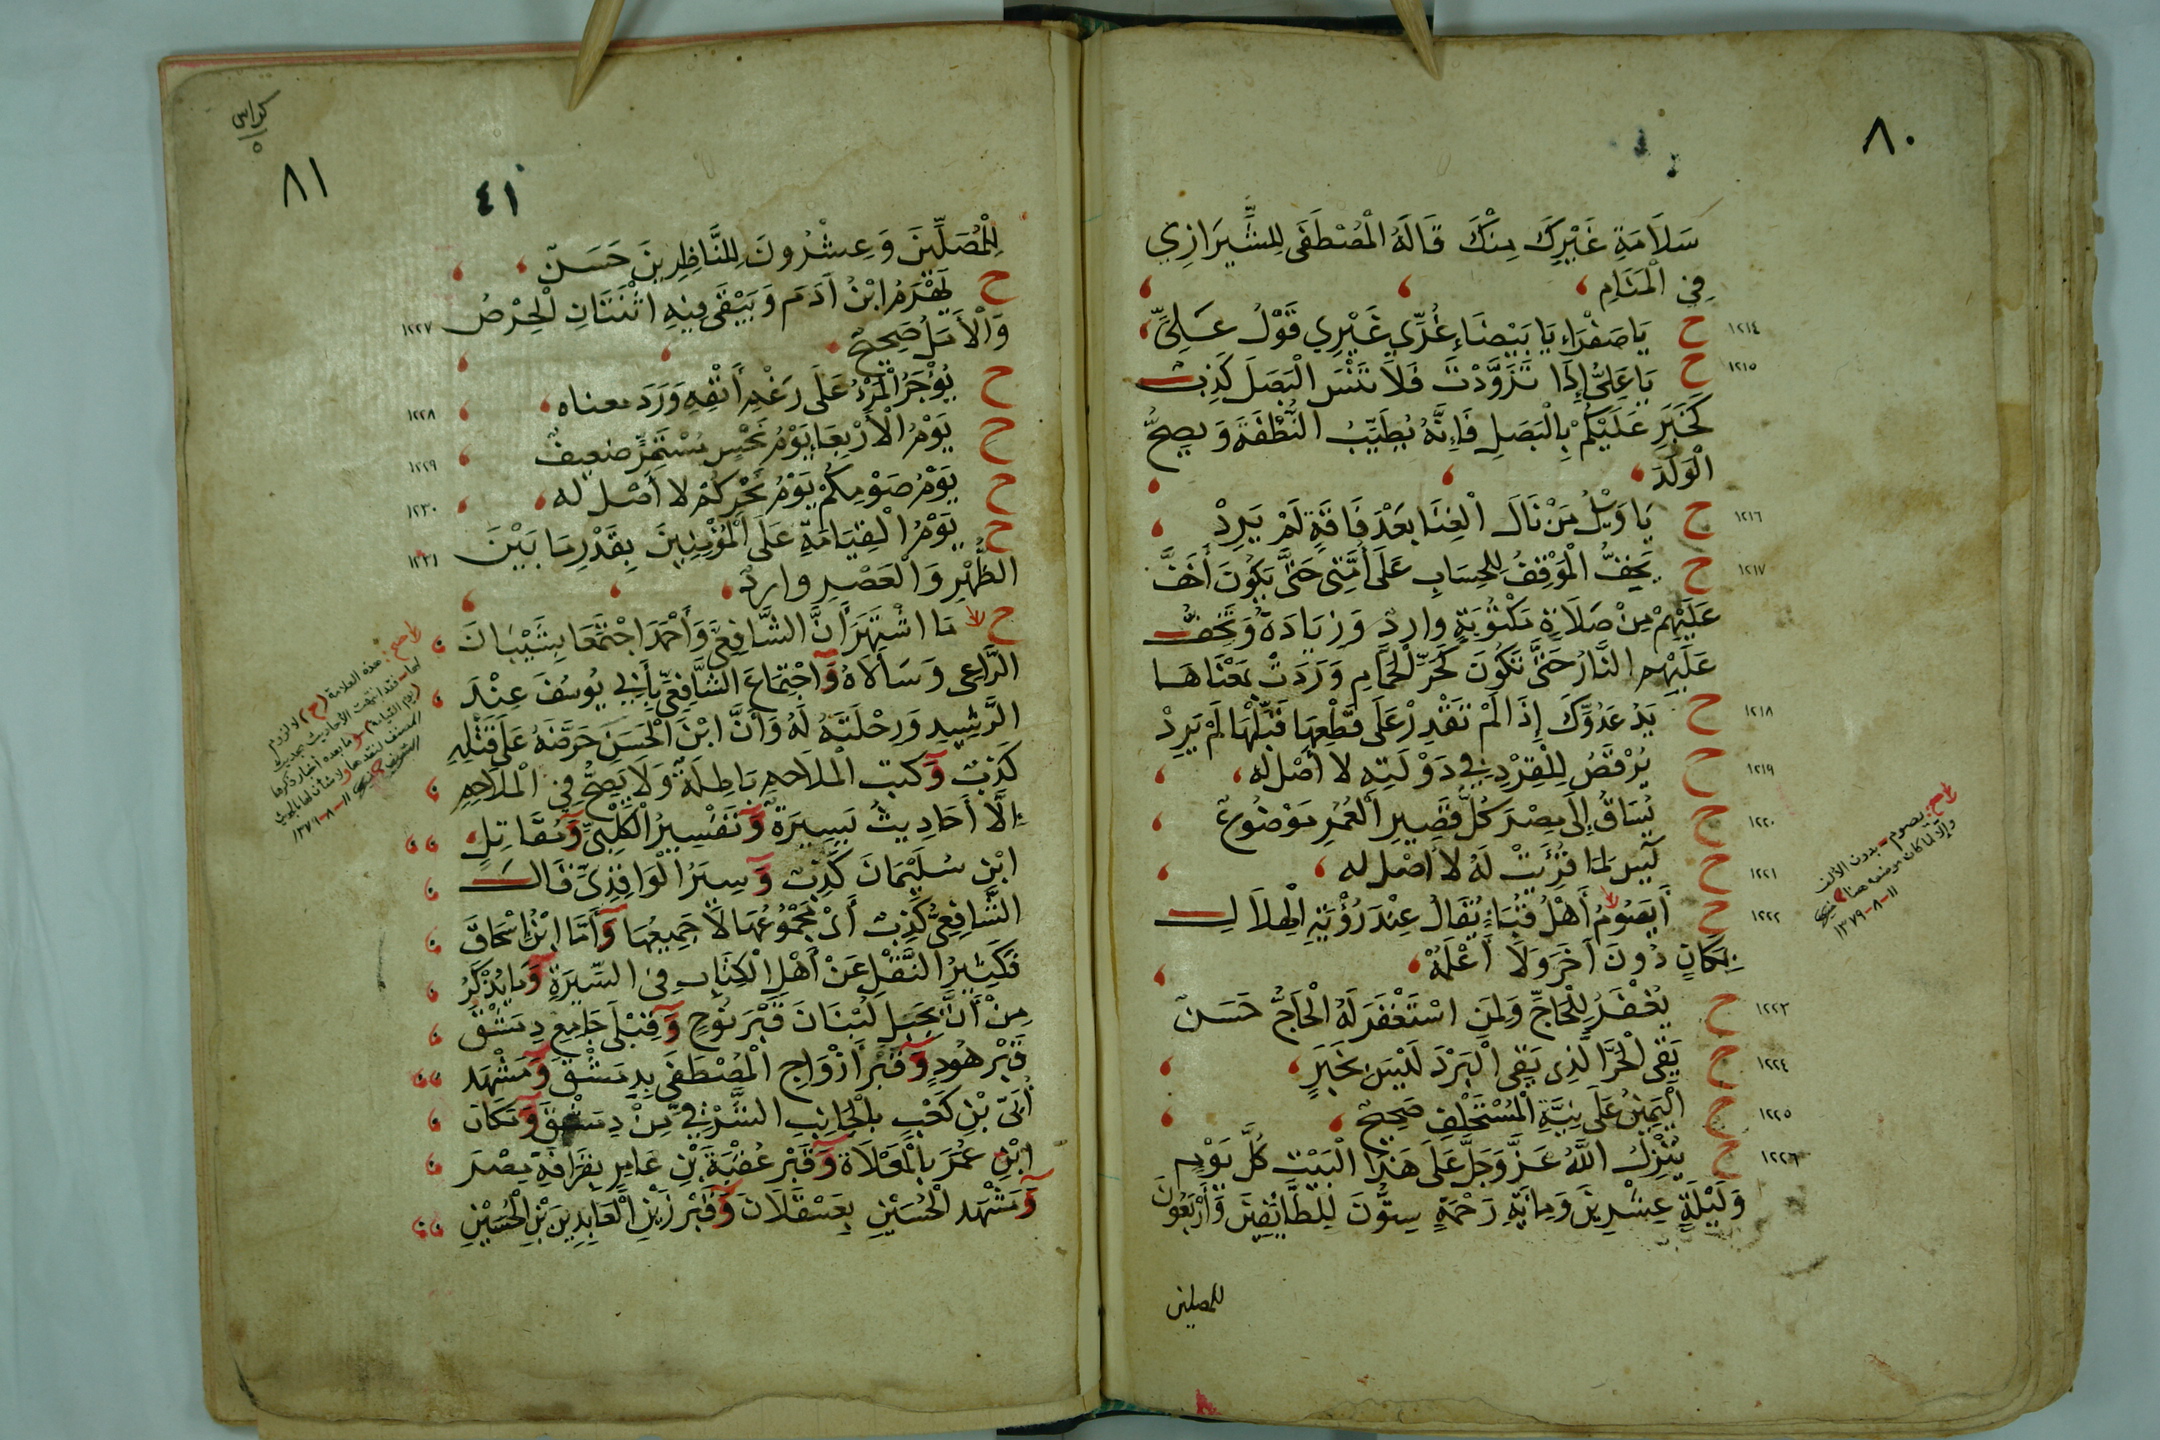 ٨٠
سَلَامَةِ غَيْرِكَ مِنْكَ قَالَهُ الْمُصْطَفَى لِلشِّيرَازِي
فِي الْمَنَامِ
١٢١٤ ح يَا صَفْرَاءِ يَا بَيْضَاءِ غُرِّي غَيْرِي قَوْلُ عَلِيٍّ
١٢١٥ ح يَا عَلِيُّ إِذَا تَزَوَّدْتَ فَلَا تَنْسَ الْبَصَلَ كَذِبٌ
كَخَبَرِ عَلَيْكُمْ بِالْبَصَلِ فَإِنَّهُ يُطَيِّبُ النُّطْفَةَ وَيصِحُّ
الْوَلَدَ
١٢١٦ ح يَا وَيْلُ مَنْ نَالَ الْغِنَا بَعْدَ فَاقَةٍ لَمْ يَرِدْ
١٢١٧ ح يَخِفُّ الْمَوْقِفُ لِلْحِسَابِ عَلَى أُمَّتِي حَتَّى يَكُونَ أَخَفَّ
عَلَيْهِمْ مِنْ صَلَاةٍ مَكْتُوبَةٍ وارِدٌ وَزِيَادَةُ وَتَخِفُّ
عَلَيْهِم النَّارُ حَتَّى تَكُونَ كَحَرِّ الْحَمَّامِ وَرَدَتْ بِمَعْنَاهَا
١٢١٨ ح يَدُ عَدُوِّكَ إِذَا لَمْ تَقْدِرْ عَلَى قَطْعِهَا قَبِّلْهَا لَمْ يَرِدْ
١٢١٩ ح يُرْقَصُ لِلْقِرْدِ فِي دَوْلَتِهِ لا أَصْلَ لَهُ
١٢٢٠ ح يُسَاقُ إِلَى مِصْرَ كُلُّ قَصِيرِ الْعُمُرِ مَوْضُوعٌ
١٢٢١ ح يٰسٓ لِمَا قُرِئَتْ لَهُ لَا أَصْل له
١٢٢٢ ح أَيَصُومُ أَهْلُ قُبَاءٍ يُقَالُ عِنْدَ رُؤْيَةِ الْهِلَالِ
بِمَكَانٍ دُونَ آخَرَ وَلَا أَعْلَمُهُ
١٢٢٣ ح يُغْفَرُ لِلْحَاجِّ وَلِمَنِ اسْتَغْفَرَ لَهُ الْحَاجُّ حَسَنٌ
١٢٢٤ ح يَقِي الْحُرَّ الَّذِي يَقِي الْبَرْدَ لَيْسَ بِخَبَرٍ
١٢٢٥ ح الْيَمِينُ عَلَى نِيَّةِ الْمُسْتَحْلِفِ صَحِيحٌ
١٢٢٦ ح يُنْزِلُ اللَّهُ عَزَّ وَجَلَّ عَلَى هَذَا الْبَيْتِ كُلَّ يَوْمٍ
وَلَيْلَةٍ عِشْرِينَ وَمِائَةِ رَحْمَةٍ سِتُّونَ لِلطَّائِفِينَ وَأَرْبَعُونَ
للمصلين
صح: يصوم
١١-٨-١٣٧٩
كراس
٥
٨١
٤١
لِلْمُصَلِّينَ وَعِشْرُونَ لِلنَّاظِرِينَ حَسَنٌ
ح يَهْرَمُ ابْنُ آدَمَ وَيَبْقَى فِيهِ اثْنَتَانِ الْحِرْصُ ١٢٢٧
وَالْأَمَلُ صَحِيحٌ
ح يُؤْجَرُ الْمَرْءُ عَلَى رَغْمِ أَنْفِهِ وَرَدَ معناه ١٢٢٨
ح يَوْمُ الْأَرْبِعَاءِ يَوْمُ نَحْسٍ مُسْتَمِرٍّ ضعيفٌ ١٢٢٩
ح يَوْمُ صَوْمِكُمْ يَوْمُ نَحْرِكُمْ لا أَصْل له ١٢٣٠
ح يَوْمُ الْقِيَامَةِ عَلَى الْمُؤْمِنِينَ بِقَدْرِ مَا بَيْنَ ١٢٣١
الظُّهْرِ وَالْعَصْرِ واردٌ
ح مَا اشْتَهَرَ أَنَّ الشَّافِعِيَّ وَأَحْمَدَ اجْتَمَعَا بِشَيْبَانَ
الرَّاعِي وَسَأَلَاهُ وَاجْتِمَاعَ الشَّافِعِيِّ بِأَبِي يُوسُفَ عِنْدَ
الرَّشِيدِ وَرِحْلَتَهُ لَهُ وَأَنَّ ابْنَ الْحَسَنِ حَرَّضَهُ عَلَى قَتْلِهِ
كَذِبٌ وَكتب الْمَلَاحِمِ بَاطِلَةٌ وَلَا يَصِحُّ فِي الْمَلَاحِمِ
إِلَّا أَحَادِيثُ يَسِيرَةٌ وَتَفْسِيرُ الْكَلْبِيِّ وَمُقَاتِلِ
ابْنِ سُلَيْمَانَ كَذِبٌ وَسِيَرُ الْوَاقِدِيِّ قَالَ
الشَّافِعِيُّ كَذِبٌ أَيْ مَجْمُوعُهَا لَا جَمِيعُهَا وَأَمَّا ابْنُ إِسْحَاقَ
فَكَثِيرُ النَّقْلِ عَنْ أَهْلِ الْكِتَابِ فِي السِّيرَةِ وَمَا يُذْكَرُ
مِنْ أَنَّ بِجَبَلِ لُبْنَانَ قَبْرَ نُوحٍ وَقِبْلَى جَامِعِ دِمَشْقَ
قَبْرَ هُودٍ وَقَبْرَ أَزْوَاجِ الْمُصْطَفَى بِدِمَشْقَ وَمَشْهَد
أُبَيِّ بْنِ كَعْبٍ بِالْجَانِبِ الشَّرْقِيِّ مِنْ دِمَشْقَ وَمَكَانَ
ابْنِ عُمَرَ بِالْمَعْلَاةِ وَقَبْرَ عُقْبَةَ بْنِ عَامِرٍ بِقَرَافَةِ مِصْرَ
وَمَشْهَد الْحُسَيْنِ بِعَسْقَلَانَ وَقَبْرَ زَيْنِ الْعَابِدِينَ بْنِ الْحُسَيْنِ
صح: هذه العلامة (ح) لا لزوم
لها فقد انتهت الأحاديث بحديث
(يوم القيامة) وما بعده أخبار ذكرها
١١-٨-١٣٧٩